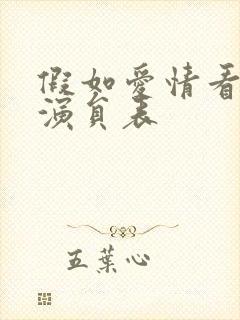 假如愛情看
演員表
五葉心